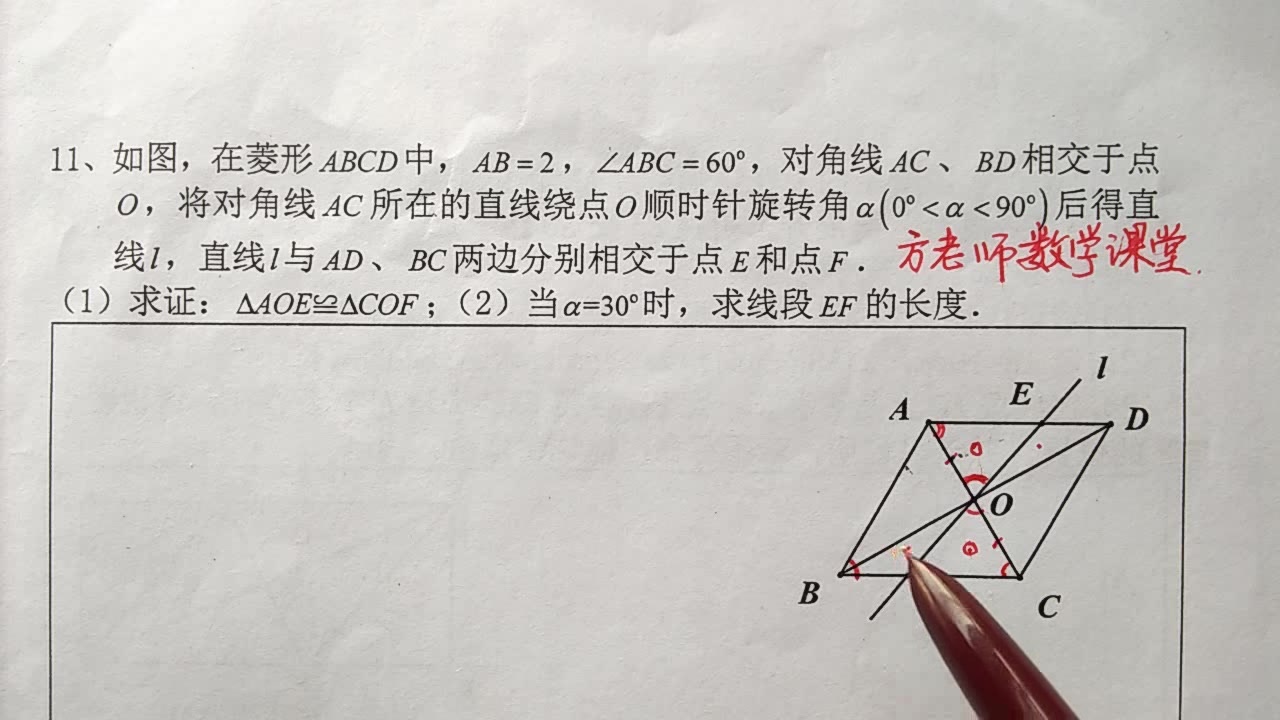 11、如图，在菱形ABCD中，AB=2，∠ABC=60°，对角线AC、BD相交于点
O，将对角线AC所在的直线绕点O顺时针旋转角α(0°<α<90°)后得直
线l，直线l与AD、BC两边分别相交于点E和点F．
方老师数学课堂.
（1）求证：ΔAOE≌ΔCOF；（2）当α=30°时，求线段EF的长度．
l
E
A
D
O
B
C